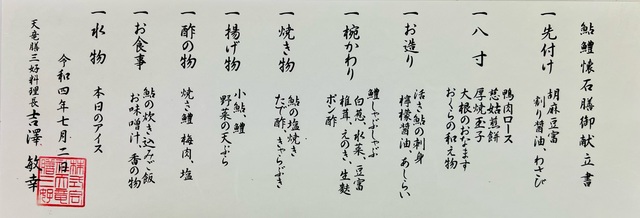 鮎鱧懐石膳御献立書
一先付け
胡麻豆富
割り醤油、わさび
一八寸
鴨肉ロース
慈姑煎餅
厚焼玉子
大根のおなます
おくらの和え物
一お造り
活き鮎の刺身
檸檬醤油、あしらい
一椀かわり
鱧しゃぶしゃぶ
白葱、水菜、豆富
椎茸、えのき、生麩
ポン酢
一焼き物
鮎の塩焼き
たで酢、きゃらぶき
一揚げ物
小鮎、鱧
野菜の天ぷら
一酢の物
焼き鱧 梅肉、塩
一お食事
鮎の炊き込みご飯
お味噌汁、香の物
一水物
本日のアイス
令和四年七月二日
天竜膳三好料理長 吉澤 敏幸